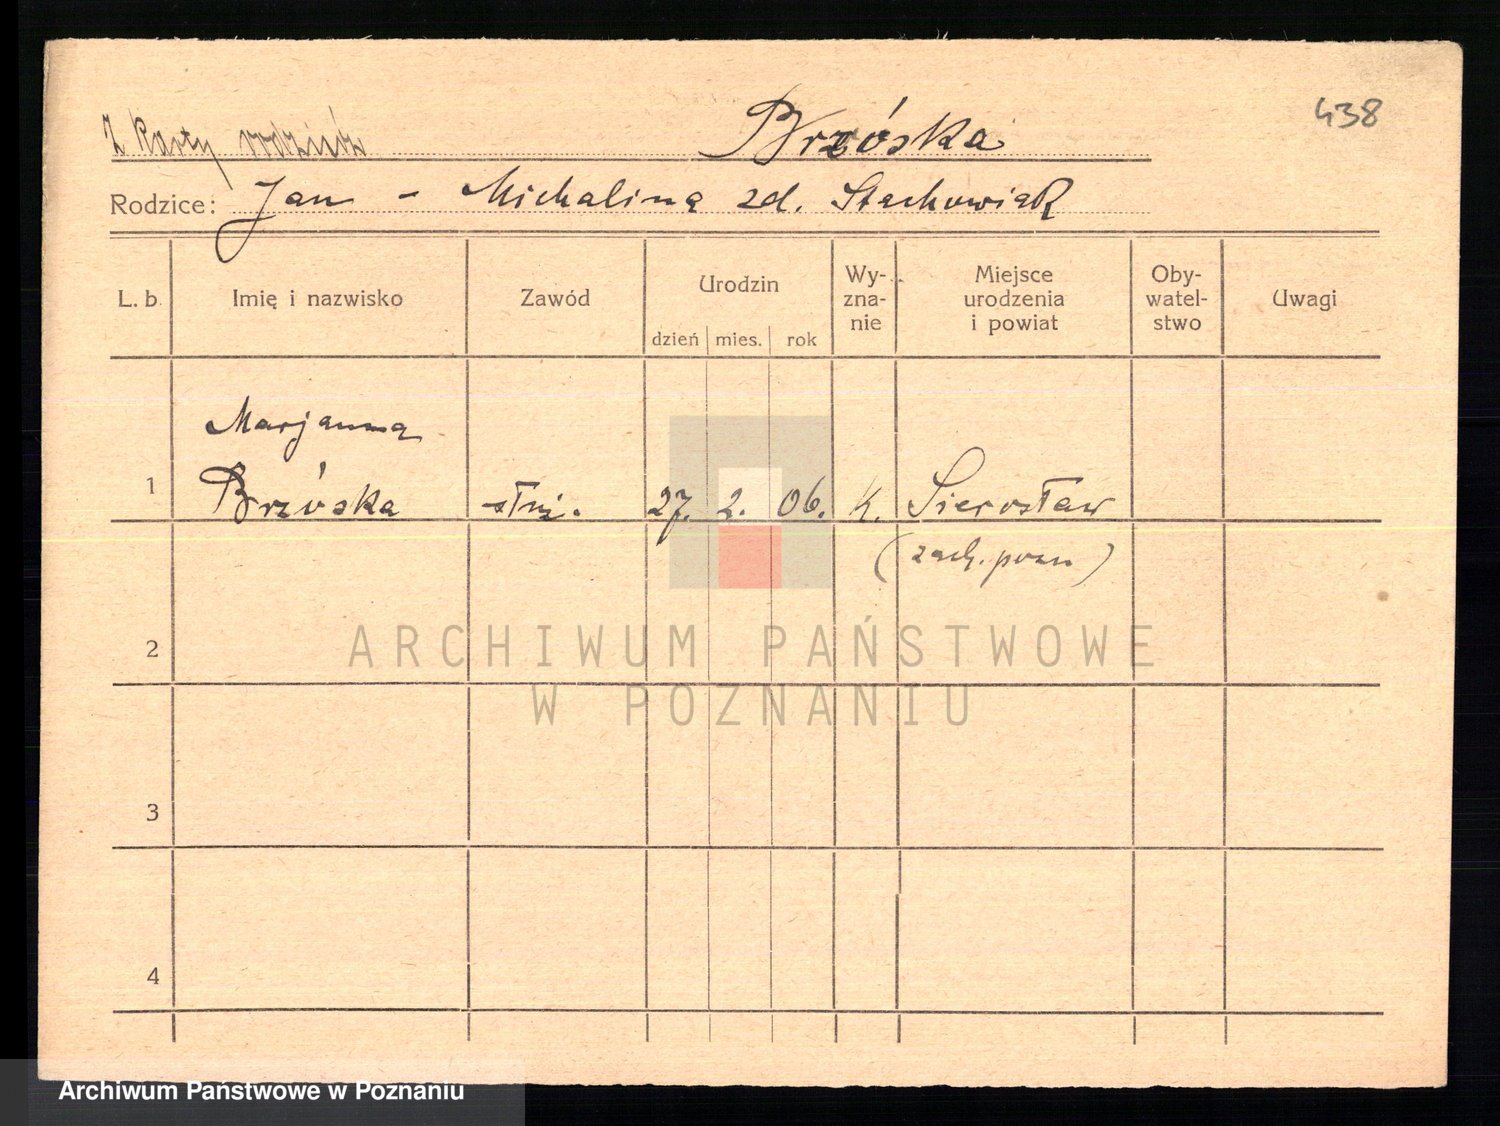 438
Z Karty rodziców
Brzóska
Rodzice: Jan - Michalina zd. Stachowiak
L. b. Imię i nazwisko Zawód Urodzin dzień mies. rok Wy-zna-nie Miejsce urodzenia i powiat Oby-watel-stwo Uwagi
Marjanna
1 Brzóska służ. 27. 2. 06. k. Sierosław
(zach. pozn)
2
ARCHIWUM PAŃSTWOWE
W POZNANIU
3
4
Archiwum Państwowe w Poznaniu